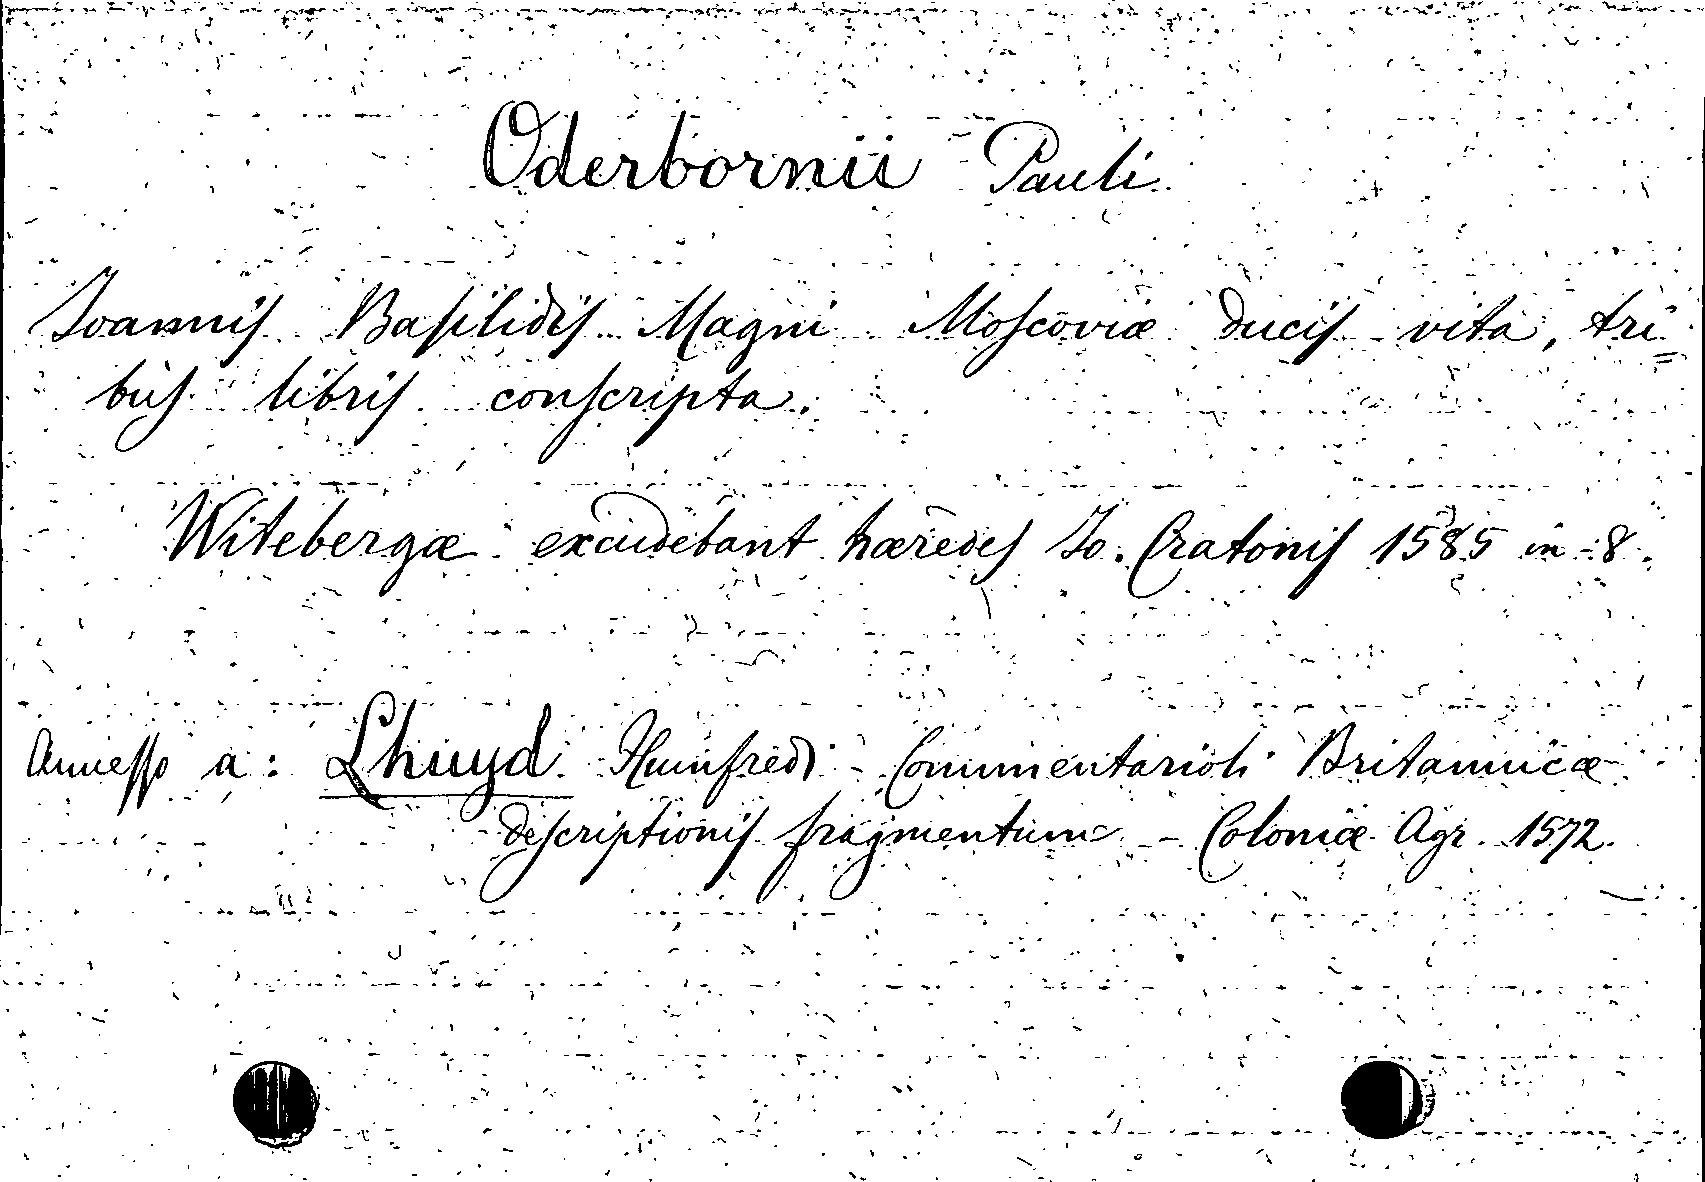 Oderbornii Pauli
Ioannis Basilidis Magni Moscoviæ ducis vita, tri=
bus libris conscripta.
Witebergæ excudebant hæredes Io. Cratonis 1585 in 8.
Annesso a: Lhuyd Humfredi - Commentarioli Britannicæ
descriptionis fragmentum - Coloniæ Agr. 1572.